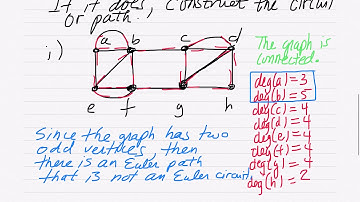 If it does, construct the circuit
or path.
i)
a b c d
e f g h
The graph is
connected.
deg(a)=3
deg(b)=5
deg(c)=4
deg(d)=4
deg(e)=4
deg(f)=4
deg(g)=4
deg(h)=2
Since the graph has two
odd vertices, then
there is an Euler path
that is not an Euler circuit.